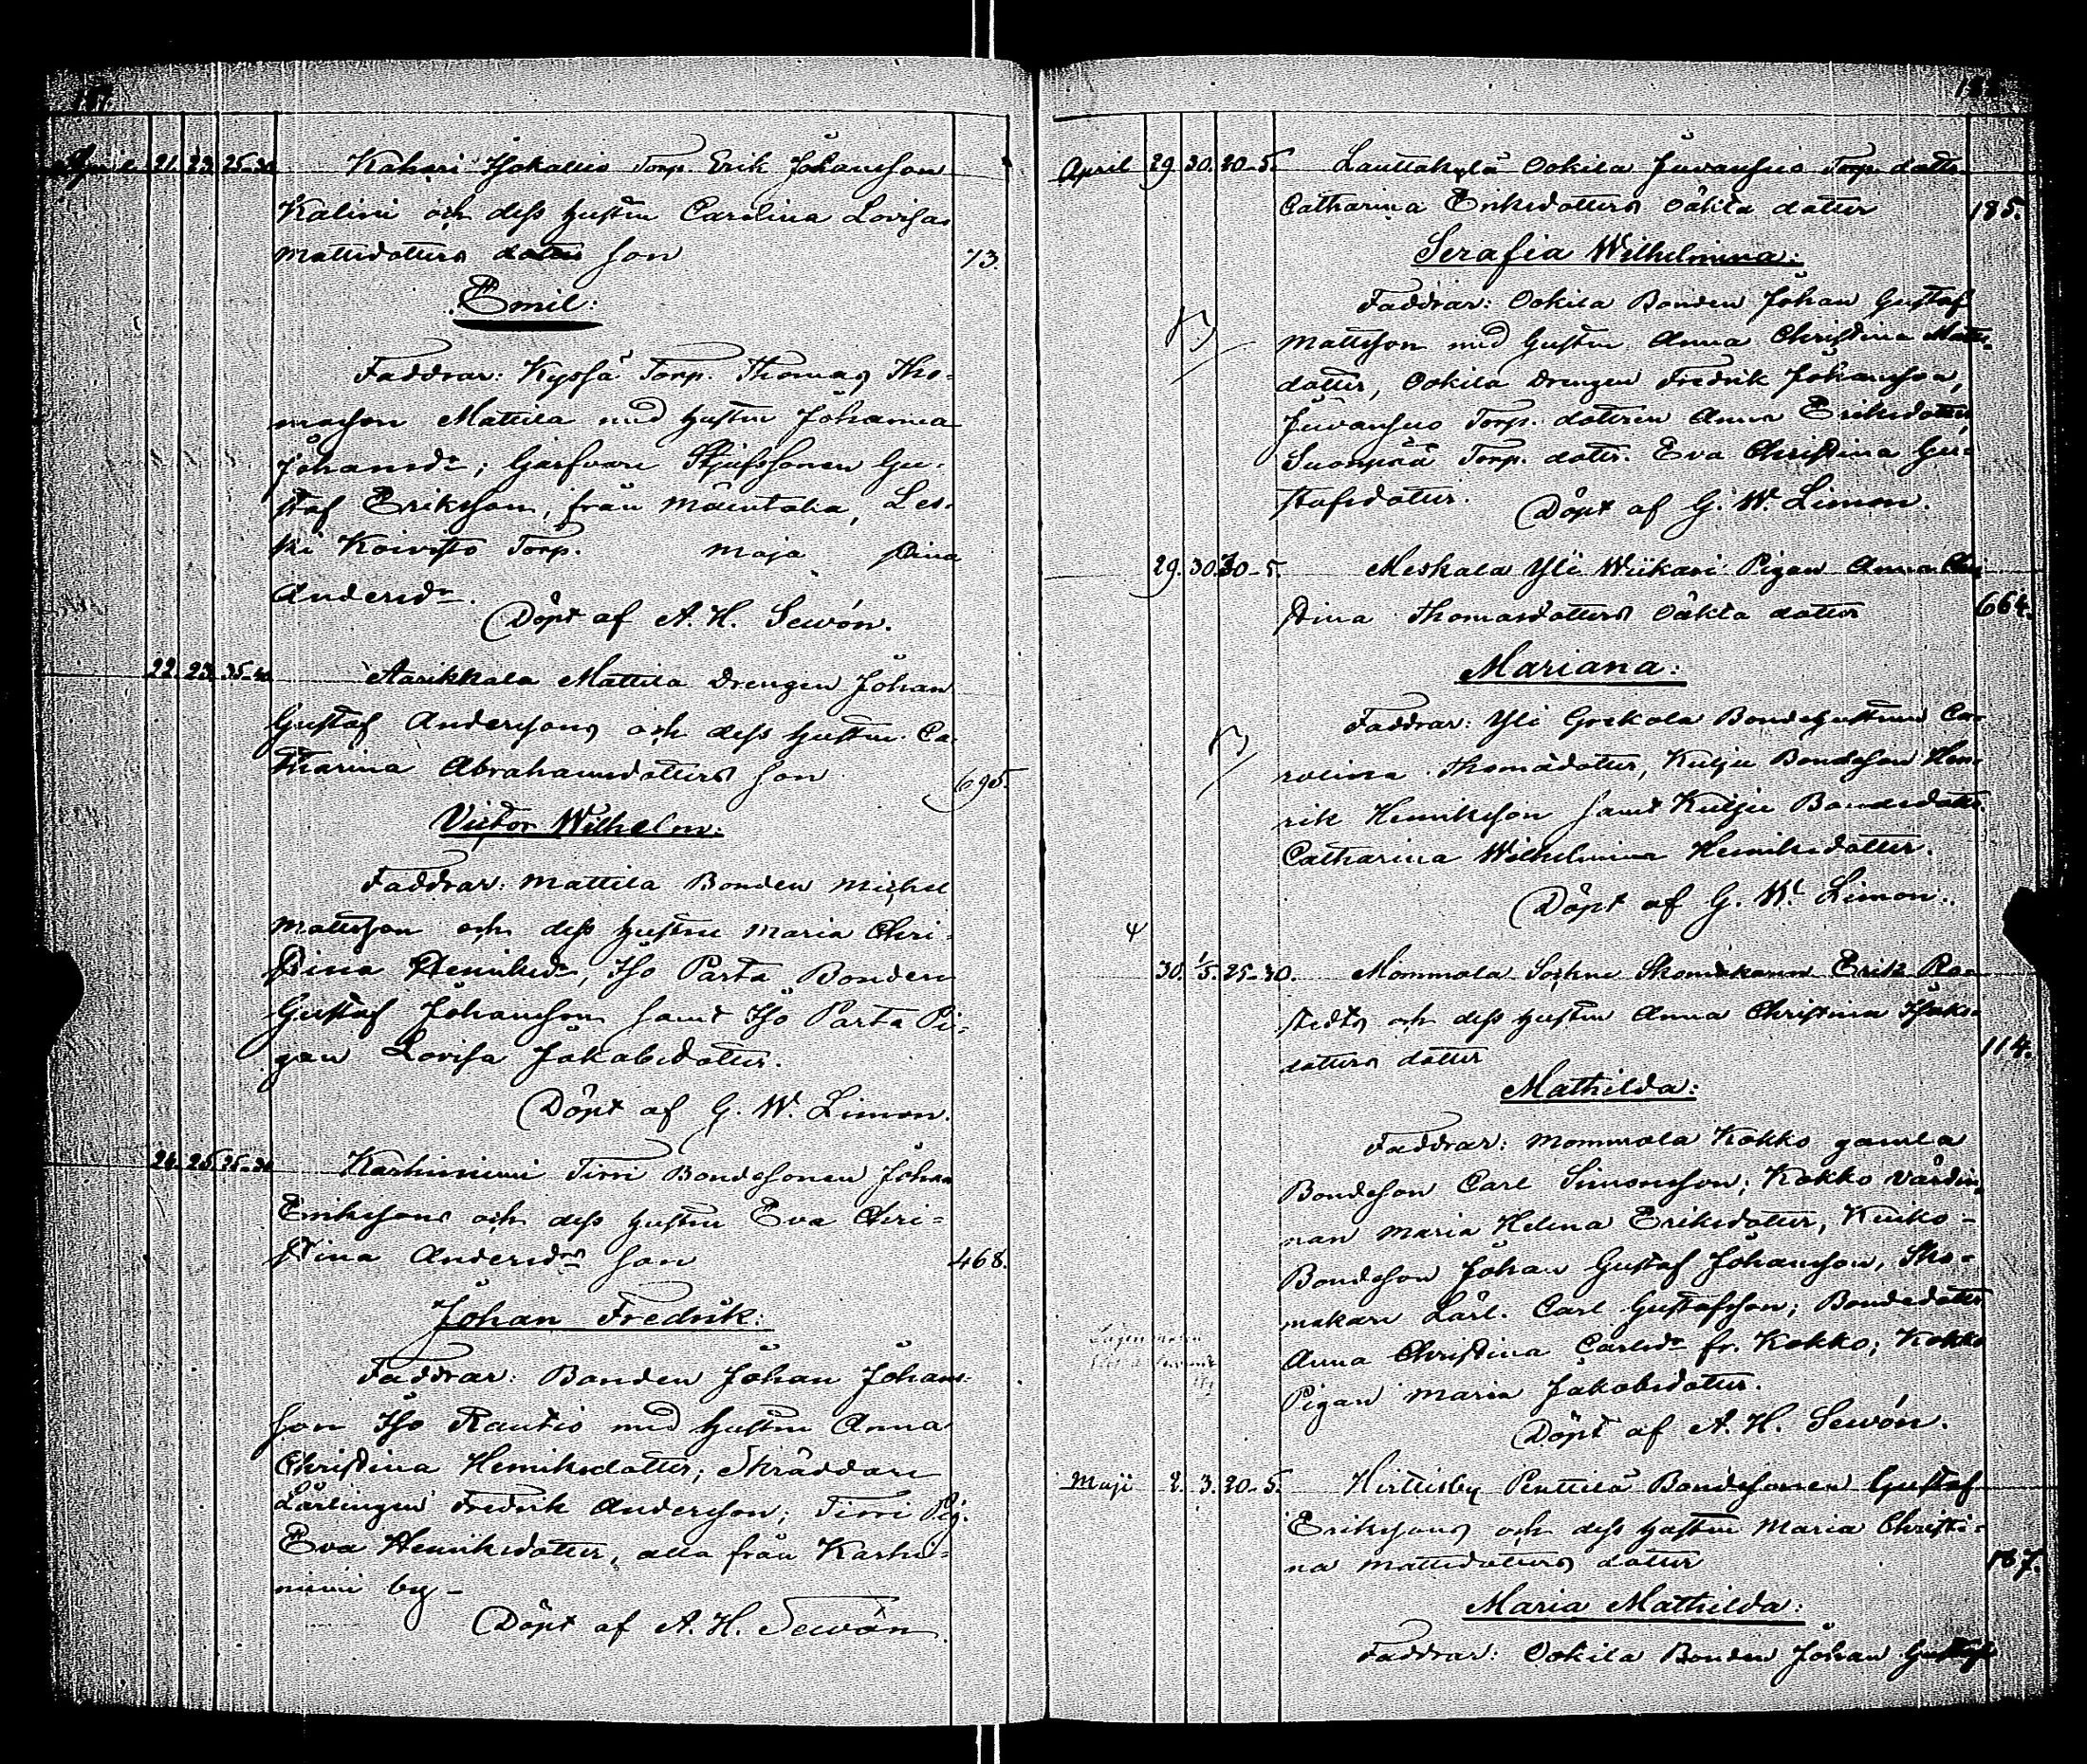 April 21. 23. 25-30 Kahari Isokallio Torp. Erik Johansson
Kalini och dess hustru Carolina Lovisa
Mattsdotters dotter son 73.
Emil:
Faddrar: Kyssä Torp. Thomas Tho-
masson Mattila med hustru Johanna
Johansdr; Garfvare Stjufssonen Gu-
staf Eriksson, från Mäentaka, Les-
ki Koivisto Torp. Maja Stina
Andersdr.
Döpt af A. H. Sewón.
22. 23. 35-40 Aarikkala Mattila Drengen Johan
Gustaf Anderssons och dess hustru Ca-
tharina Abrahamsdotters son 695.
Victor Wilhelm:
Faddrar: Mattila Bonden Michel
Mattsson och dess hustru Maria Chri-
stina Henriksdr, Iso Parta Bonden
Gustaf Johansson samt Iso Parta Pi-
gan Lovisa Jakobsdotter.
Döpt af G. W. Limon.
24. 25. 25-30 Karhiniemi Tirri Bondesonen Johan
Erikssons och dess hustru Eva Chri-
stina Andersdrs son 468.
Johan Fredrik:
Faddrar: Bonden Johan Johans-
son Iso Rautio med hustru Anna
Christina Henriksdotter; Skräddare
Lärlingen Fredrik Andersson; Tirri Pig.
Eva Henriksdotter, alla från Karhi-
niemi by-
Döpt af A. H. Sewón
April 29. 30. 20-5. Lauttakylä Ookila Juvansuo Torp. dotter
Catharina Eriksdotters oäkta dotter 185.
Serafia Wilhelmina:
Faddrar: Ookila Bonden Johan Gustaf
Mattsson med hustru Anna Christina Matts-
dotter, Ookila Drengen Fredrik Johansson,
Juvansuo Torp. dottren Anna Eriksdotter,
Suonpää Torp. dotter. Eva Christina Gu-
stafsdotter.
Döpt af G. W. Limon.
29. 30. 30-5. Meskala Yli Wiikari Pigan Anna Chri
stina Thomasdotters oäkta dotter 664.
Mariana:
Faddrar: Yli Grekola Bondehustrun Ca-
rolina Thomasdotter, Kulju Bondeson Hen-
rik Henriksson samt Kulju Bondedotter
Catharina Wilhelmina Henriksdotter.
Döpt af G. W. Limon.
30. 1/5. 25-30. Mommola Sochne Skomakaren Erik Ro-
stedts och dess hustru Anna Christina Isaks-
dotters dotter 114.
Mathilda:
Faddrar: Mommola Kokko gamla
Bondeson Carl Simonsson; Kokko värdin-
nan Maria Helena Eriksdotter, Kuiko-
Bondeson Johan Gustaf Johansson, Sko-
makare Lärl. Carl Gustafsson; Bondedotter
Anna Christina Carlsdr fr. Kokko; Kokko
Pigan Maria Jakobsdotter.
Döpt af A. H. Sewón.
Maji 2. 3. 20-5. Hirttisby Penttilä Bondesonen Gustaf
Erikssons och dess hustru Maria Christi-
na Mattsdotters dotter 167.
Maria Mathilda:
Faddrar: Ookila Bonden Johan Gustaf